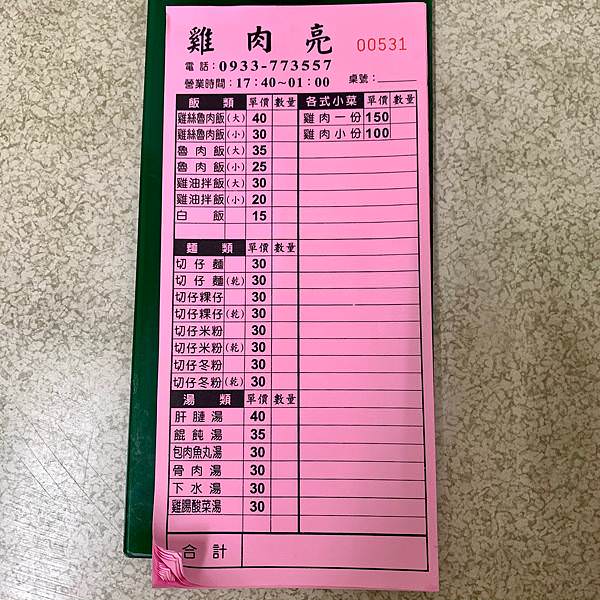 雞肉亮 00531
電話：0933-773557
營業時間：17：40~01：00 桌號：
飯類 單價 數量 各式小菜 單價 數量
雞絲魯肉飯(大) 40 雞肉一份 150
雞絲魯肉飯(小) 30 雞肉小份 100
魯肉飯(大) 35
魯肉飯(小) 25
雞油拌飯(大) 30
雞油拌飯(小) 20
白飯 15
麵類 單價 數量
切仔麵 30
切仔麵(乾) 30
切仔粿仔 30
切仔粿仔(乾) 30
切仔米粉 30
切仔米粉(乾) 30
切仔冬粉 30
切仔冬粉(乾) 30
湯類 單價 數量
肝膇湯 40
餛飩湯 35
包肉魚丸湯 30
骨肉湯 30
下水湯 30
雞腸酸菜湯 30
合計